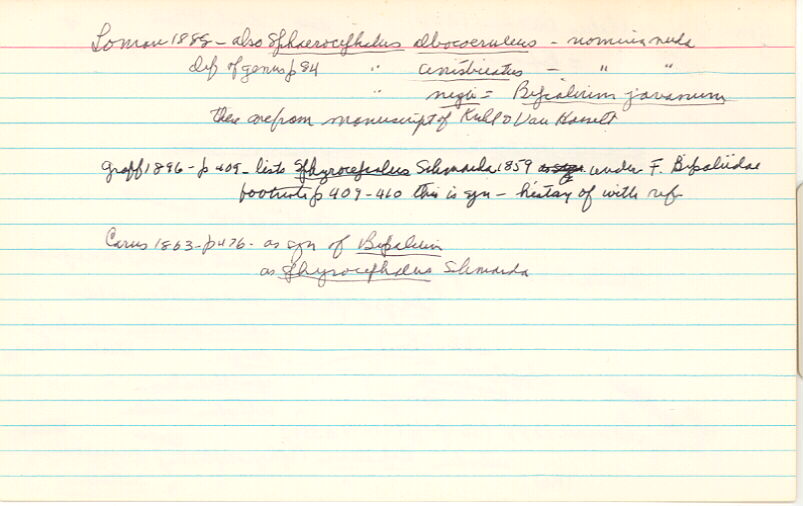 Loman 1888 - also Sphaerocephalus albocoeruleus - nomina nuda
def of genus p 84 " unistriatus - " "
" negle = Bipalium javanum
these are from manuscript of Kuhl & Van Hasselt
Graff 1896 - p 409 - lists Sphyrocephalus Schmarda 1859 under F. Bipaliidae
footnote p 409-410 this is syn - history of with ref
Carus 1863 - p 476 - as syn of Bipalium
as Sphyrocephalus Schmarda